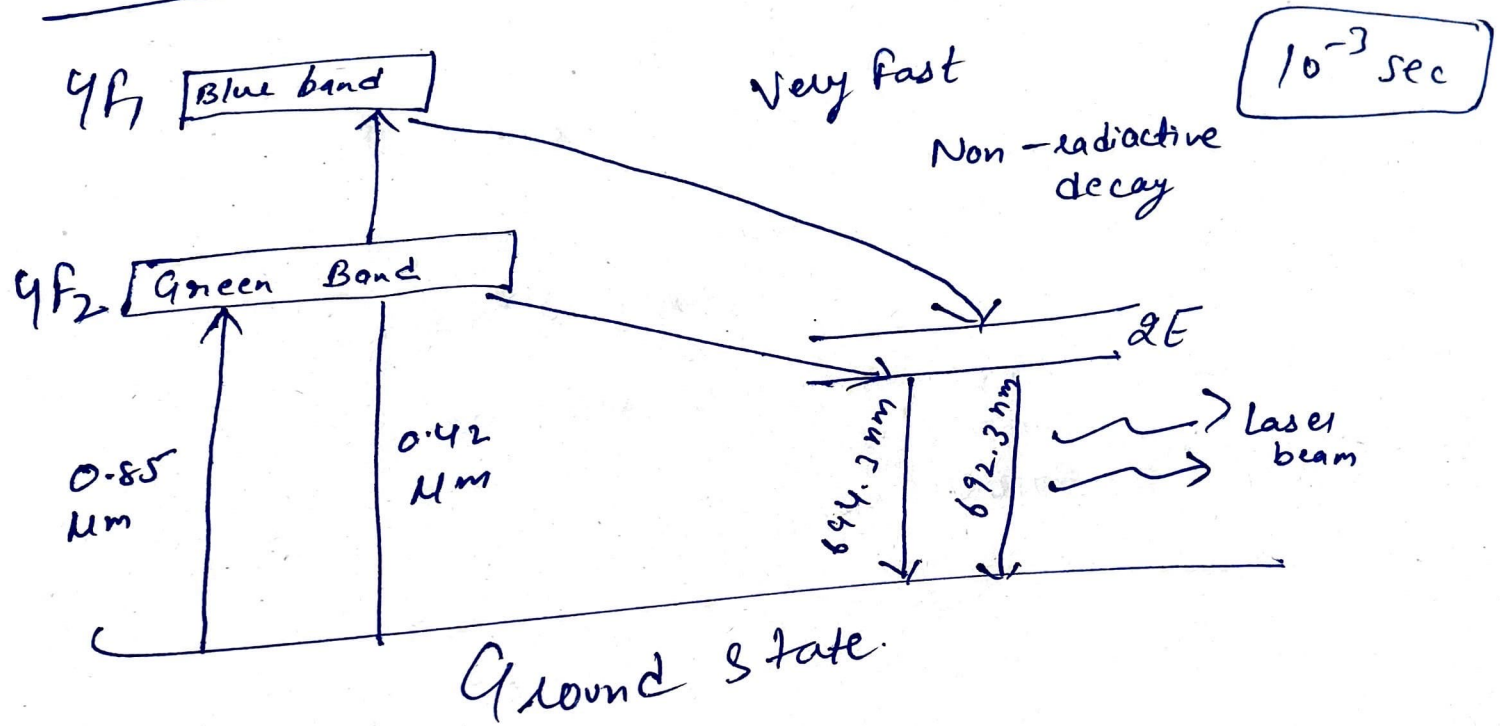 4f1 Blue band
Very fast
10⁻³ sec
Non-radiactive
decay
4f2 Green Band
2E
0.85
μm
0.42
μm
694.3 nm
692.3 nm
Laser
beam
Ground state.